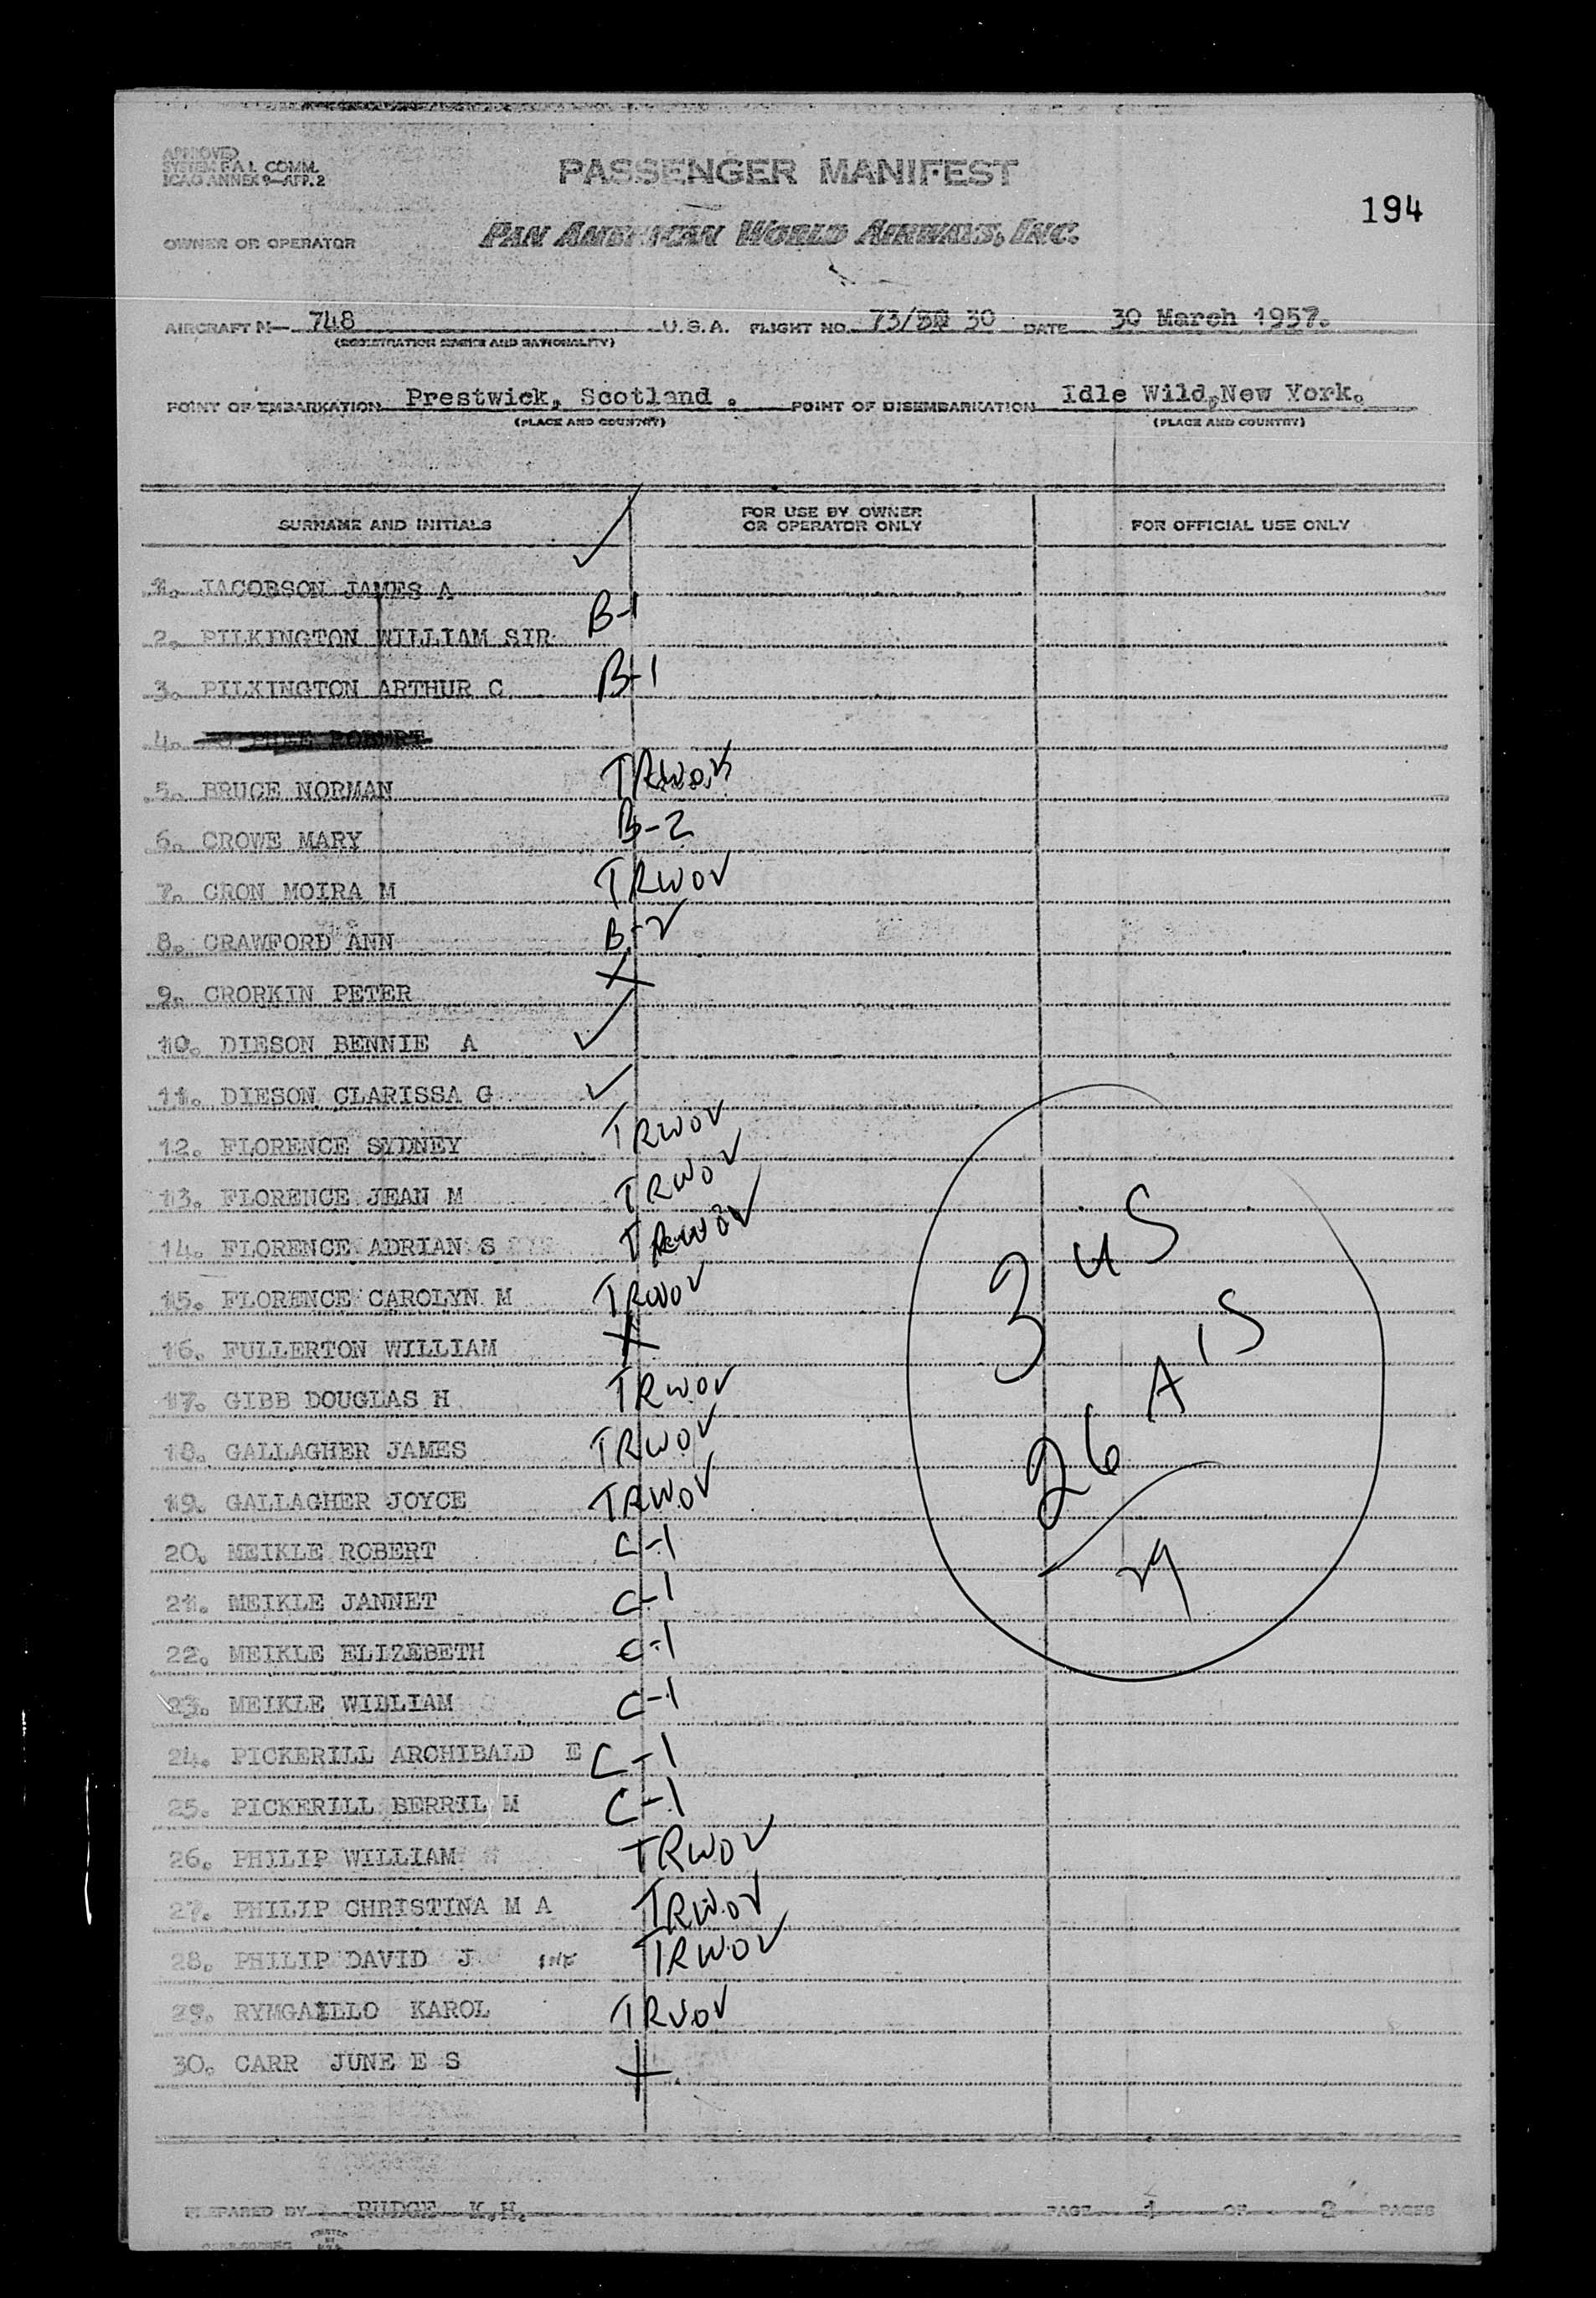 APPROVED
SYSTEM F.A.L. COMM.
ICAO ANNEX 9—APP. 2
PASSENGER MANIFEST
194
OWNER OR OPERATOR PAN AMERICAN WORLD AIRWAYS, INC.
AIRCRAFT N— 748 U.S.A. FLIGHT NO. 73/ 30 DATE 30 March 1957.
(REGISTRATION MARKS AND NATIONALITY)
POINT OF EMBARKATION Prestwick, Scotland . POINT OF DISEMBARKATION Idle Wild,New York.
(PLACE AND COUNTRY) (PLACE AND COUNTRY)
SURNAME AND INITIALS FOR USE BY OWNER OR OPERATOR ONLY FOR OFFICIAL USE ONLY
1. JACOBSON JAMES A ✓
2. PILKINGTON WILLIAM SIR B-1
3. PILKINGTON ARTHUR C B-1
4. ROBERT
5. BRUCE NORMAN TRWOV
6. CROWE MARY B-2
7. CRON MOIRA M TRWOV
8. CRAWFORD ANN B-2
9. CRORKIN PETER X
10. DIESON BENNIE A ✓
11. DIESON CLARISSA G ✓
12. FLORENCE SYDNEY TRWOV
13. FLORENCE JEAN M TRWOV
14. FLORENCE ADRIAN S TRWOV
15. FLORENCE CAROLYN M TRWOV
16. FULLERTON WILLIAM X
17. GIBB DOUGLAS H TRWOV
18. GALLAGHER JAMES TRWOV
19. GALLAGHER JOYCE TRWOV
20. MEIKLE ROBERT C-1
21. MEIKLE JANNET C-1
22. MEIKLE ELIZEBETH C-1
23. MEIKLE WILLIAM C-1
24. PICKERILL ARCHIBALD E C-1
25. PICKERILL BERRIL M C-1
26. PHILIP WILLIAM TRWOV
27. PHILIP CHRISTINA M A TRWOV
28. PHILIP DAVID J INF TRWOV
29. RYMGAILLO KAROL TRWOV
30. CARR JUNE E S X
3 US
26 A'S
29
PREPARED BY RUDGE K.H. PAGE 1 OF 2 PAGES